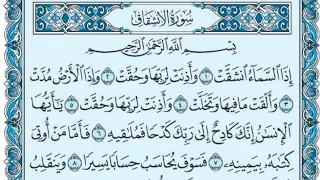 سُورَةُ الانشِقَاقِ
بِسْمِ اللَّهِ الرَّحْمَٰنِ الرَّحِيمِ
إِذَا ٱلسَّمَآءُ ٱنشَقَّتْ ١ وَأَذِنَتْ لِرَبِّهَا وَحُقَّتْ ٢ وَإِذَا ٱلْأَرْضُ مُدَّتْ
٣ وَأَلْقَتْ مَا فِيهَا وَتَخَلَّتْ ٤ وَأَذِنَتْ لِرَبِّهَا وَحُقَّتْ ٥ يَٰٓأَيُّهَا
ٱلْإِنسَٰنُ إِنَّكَ كَادِحٌ إِلَىٰ رَبِّكَ كَدْحًا فَمُلَٰقِيهِ ٦ فَأَمَّا مَنْ أُوتِىَ
كِتَٰبَهُۥ بِيَمِينِهِۦ ٧ فَسَوْفَ يُحَاسَبُ حِسَابًا يَسِيرًا ٨ وَيَنقَلِبُ